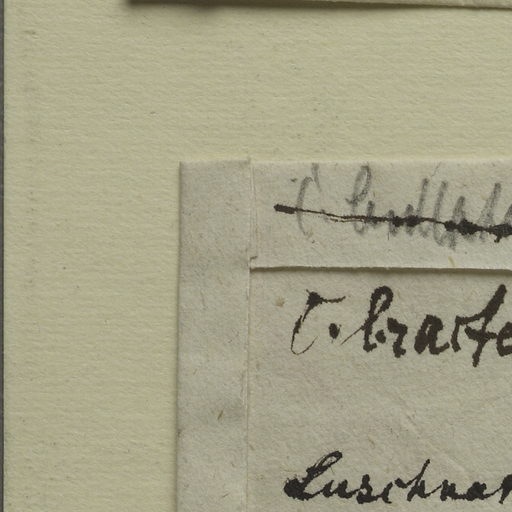 C.
C. bracte
Luschna